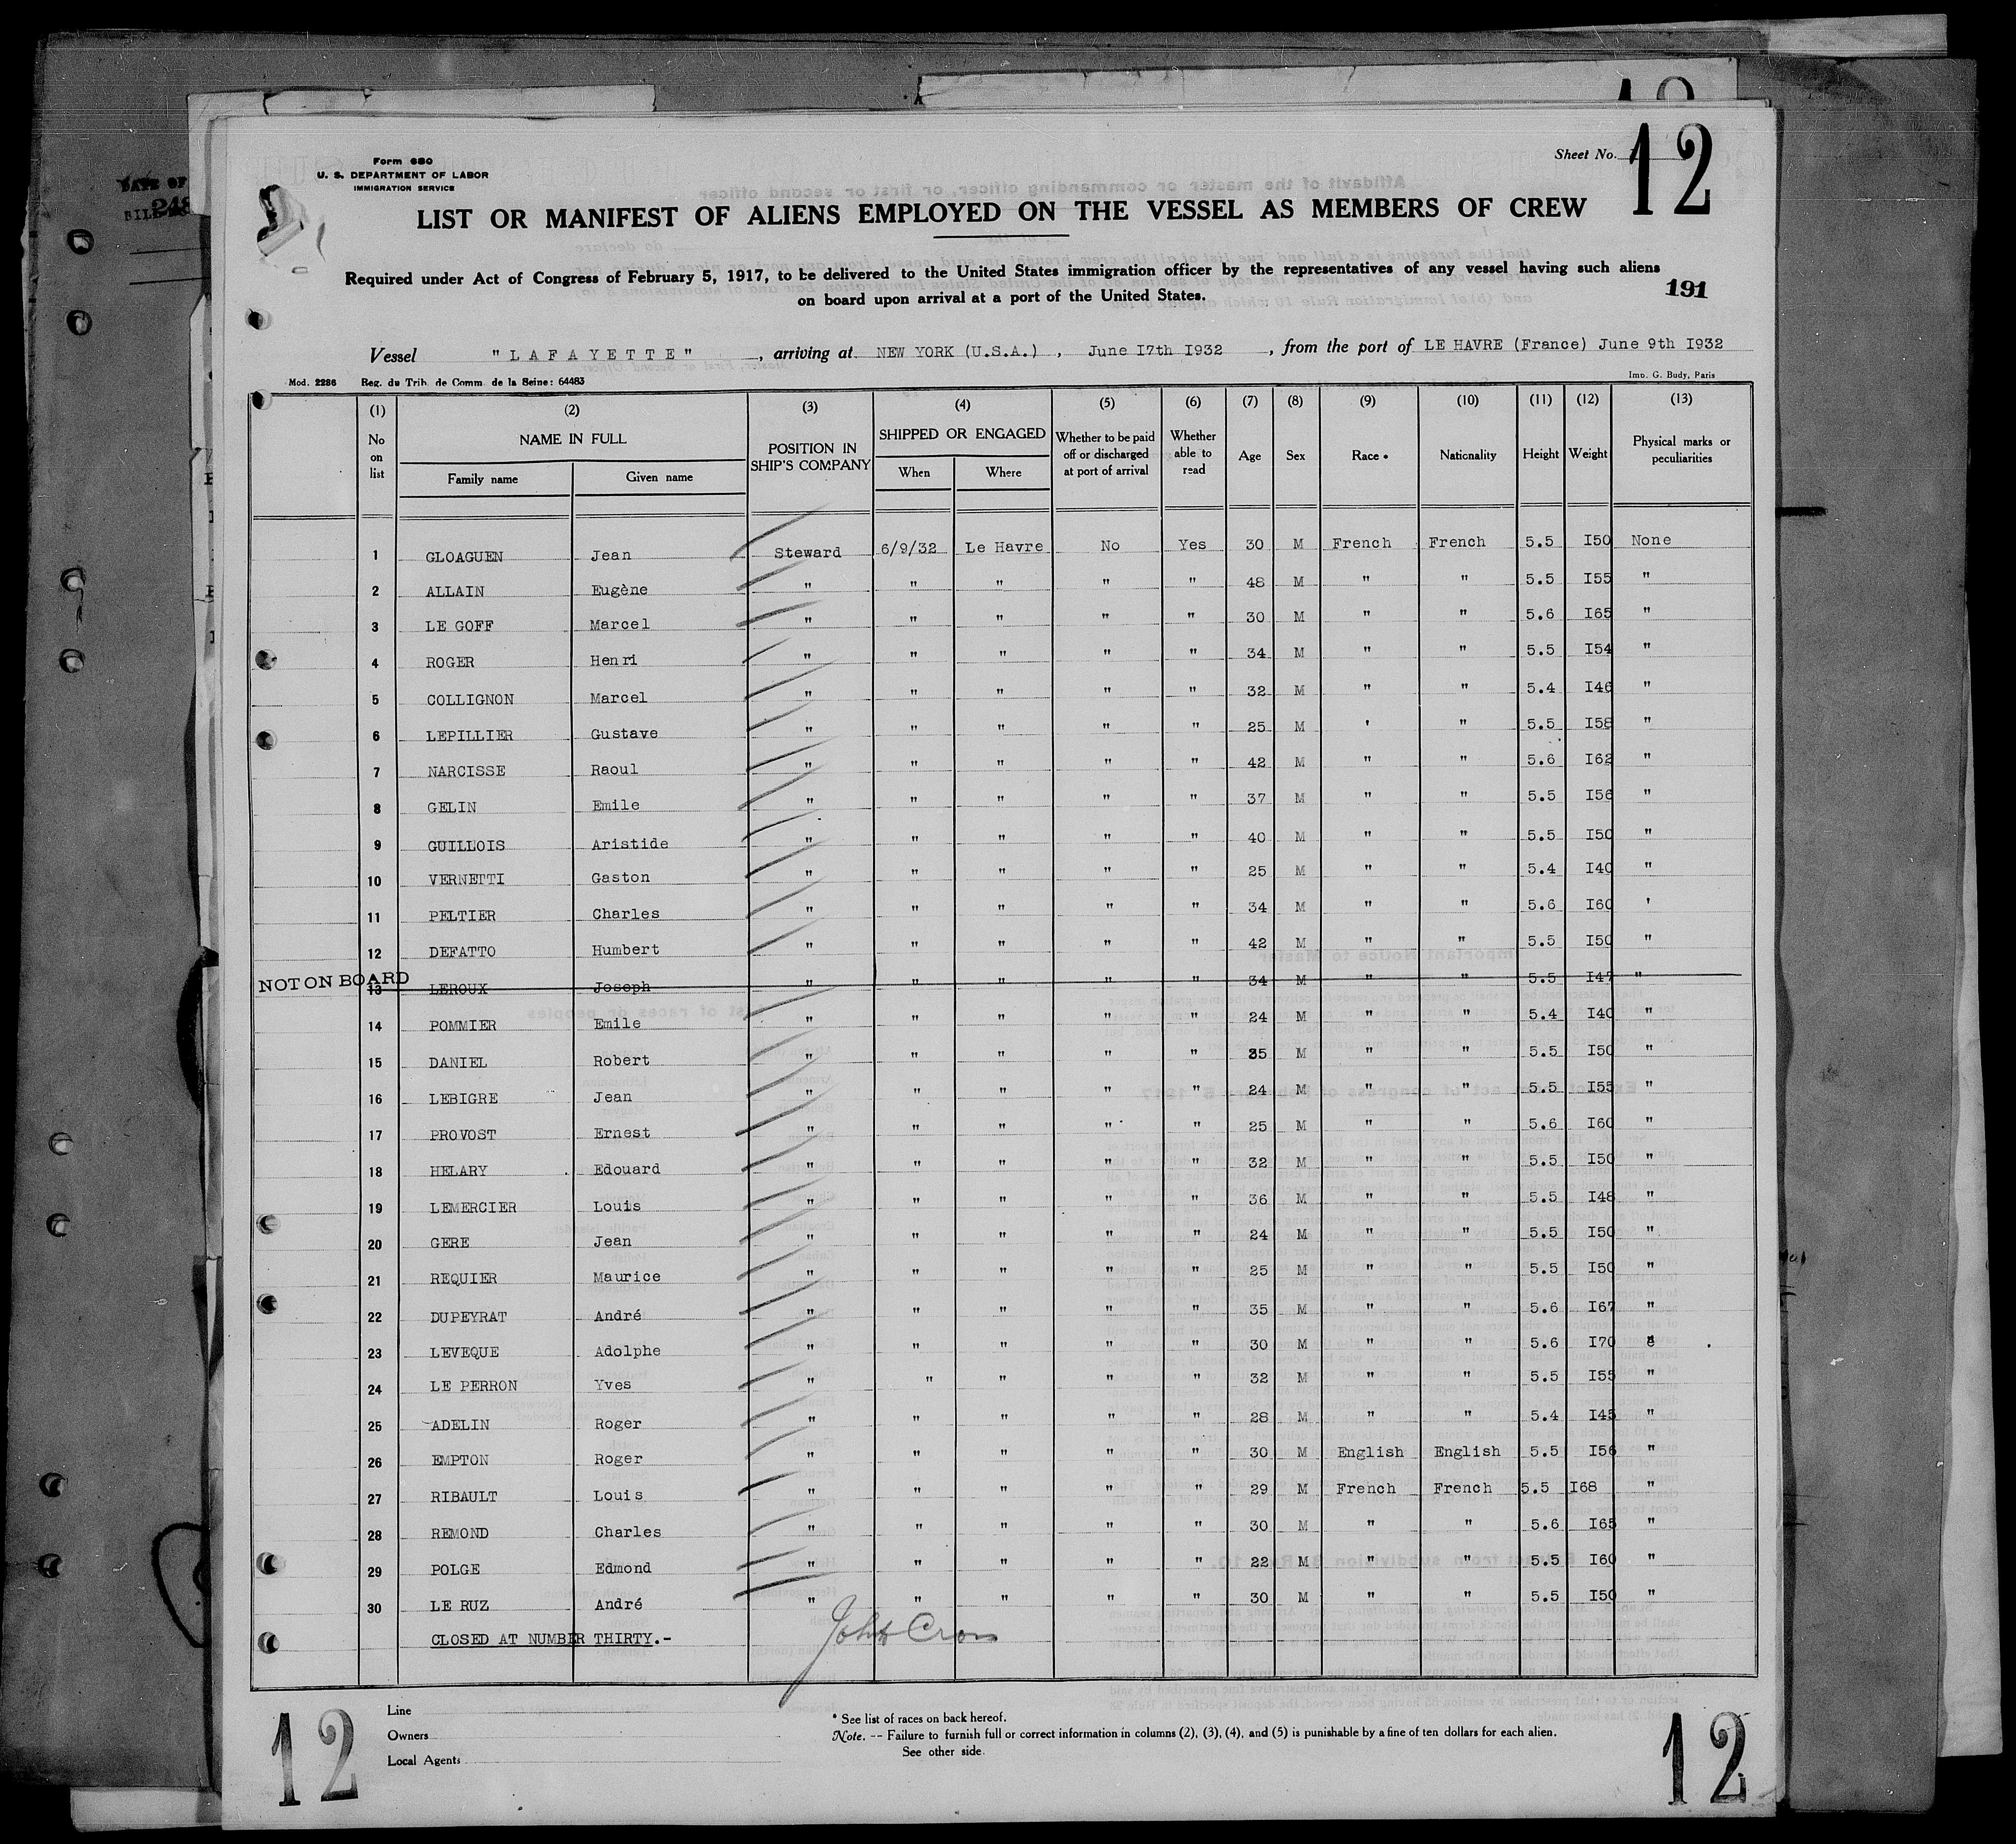 Form 680
U. S. DEPARTMENT OF LABOR
IMMIGRATION SERVICE
Sheet No.
12
LIST OR MANIFEST OF ALIENS EMPLOYED ON THE VESSEL AS MEMBERS OF CREW
Required under Act of Congress of February 5, 1917, to be delivered to the United States immigration officer by the representatives of any vessel having such aliens
on board upon arrival at a port of the United States.
191
Vessel "LAFAYETTE", arriving at NEW YORK (U.S.A.), June I7th I932, from the port of LE HAVRE (France) June 9th I932
Mod. 2286 Reg. du Trib. de Comm. de la Seine: 64483 Imp. G. Budy, Paris
(1) (2) (3) (4) (5) (6) (7) (8) (9) (10) (11) (12) (13)
No on list NAME IN FULL Family name Given name POSITION IN SHIP'S COMPANY SHIPPED OR ENGAGED When Where Whether to be paid off or discharged at port of arrival Whether able to read Age Sex Race * Nationality Height Weight Physical marks or peculiarities
1 GLOAGUEN Jean Steward 6/9/32 Le Havre No Yes 30 M French French 5.5 I50 None
2 ALLAIN Eugène " " " " " 48 M " " 5.5 I55 "
3 LE GOFF Marcel " " " " " 30 M " " 5.6 I65 "
4 ROGER Henri " " " " " 34 M " " 5.5 I54 "
5 COLLIGNON Marcel " " " " " 32 M " " 5.4 I46 "
6 LEPILLIER Gustave " " " " " 25 M ' " 5.5 I58 "
7 NARCISSE Raoul " " " " " 42 M " " 5.6 I62 "
8 GELIN Emile " " " " " 37 M " " 5.5 I56 "
9 GUILLOIS Aristide " " " " " 40 M " " 5.5 I50 "
10 VERNETTI Gaston " " " " " 25 M " " 5.4 I40 "
11 PELTIER Charles " " " " " 34 M " " 5.6 I60 '
12 DEFATTO Humbert " " " " " 42 M " " 5.5 I50 "
NOT ON BOARD 13 LEROUX Joseph " " " " " 34 M " " 5.5 I47 "
14 POMMIER Emile " " " " " 24 M " " 5.4 I40 "
15 DANIEL Robert " " " " " 35 M " " 5.5 I50 "
16 LEBIGRE Jean " " " " " 24 M " " 5.5 I55 "
17 PROVOST Ernest " " " " " 25 M " " 5.6 I60 "
18 HELARY Edouard " " " " " 32 M " " 5.5 I50 "
19 LEMERCIER Louis " " " " " 36 M " " 5.5 I48 "
20 GERE Jean " " " " " 24 M " " 5.5 I50 "
21 REQUIER Maurice " " " " " 25 M " " 5.5 I50 "
22 DUPEYRAT André " " " " " 35 M " " 5.6 I67 "
23 LEVEQUE Adolphe " " " " " 30 M " " 5.6 I70
24 LE PERRON Yves " " " " " 32 M " " 5.5 I55 "
25 ADELIN Roger " " " " " 28 M " " 5.4 I45 "
26 EMPTON Roger " " " " " 30 M English English 5.5 I56 "
27 RIBAULT Louis " " " " " 29 M French French 5.5 I68 "
28 REMOND Charles " " " " " 30 M " " 5.6 I65 "
29 POLGE Edmond " " " " " 22 M " " 5.5 I60 "
30 LE RUZ André " " " " " 30 M " " 5.5 I50 "
CLOSED AT NUMBER THIRTY.-
John Cron
Line
Owners
Local Agents
* See list of races on back hereof.
Note. -- Failure to furnish full or correct information in columns (2), (3), (4), and (5) is punishable by a fine of ten dollars for each alien.
See other side.
12
12